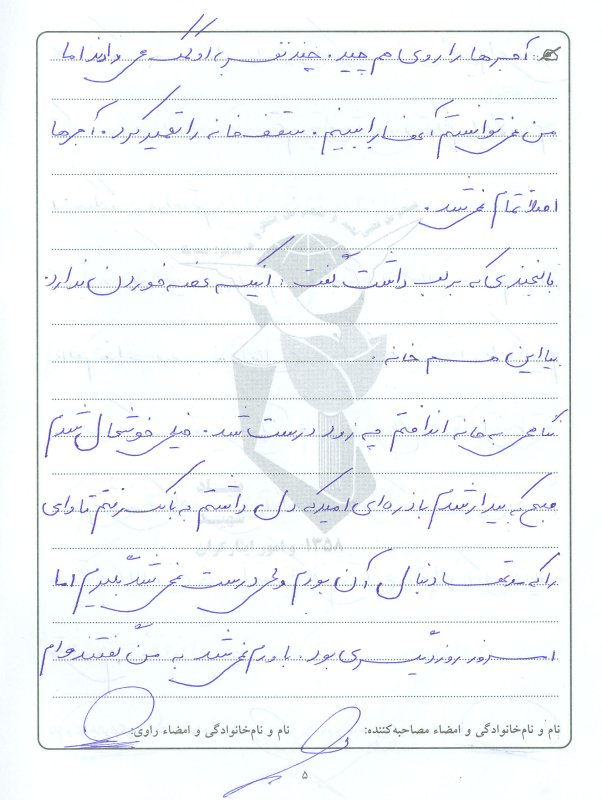 آجرها را روی هم چید. چند نفر به او کمک می دادند اما
من نمی توانستم آنها را ببینم. سقف خانه را تعمیر کرد. آجرها
اصلاً تمام نمی شد.
با لبخندی که بر لب داشت گفت: اینکه غصه خوردن ندارد.
بیا این هم خانه.
نگاهی به خانه انداختم چه زود درست شد. خیلی خوشحال شدم
صبح که بیدار شدم با ذره ای امید که در دل داشتم به بانک رفتم تا وامی
را که مدتها دنبال آن بودم ولی درست نمی شد بگیرم اما
امروز روز دیگری بود. باورم نمی شد به من گفتند وام
نام و نام خانوادگی و امضاء مصاحبه کننده:
نام و نام خانوادگی و امضاء راوی:
۵